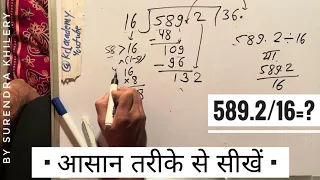 BY SURENDRA KHILERY
16 ) 589.2 ( 36.
48
109
-96
132
58 > 16
16
×8
8
589.2 ÷ 16
या
589.2
16
589.2/16=?
▪ आसान तरीके से सीखें ▪